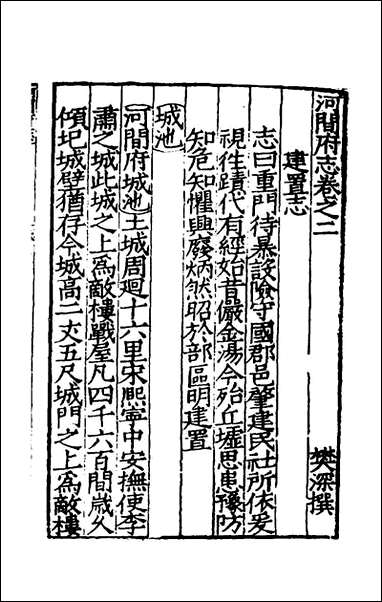 河間府志卷之二
樊深撰
建置志
志曰重門待暴設險守國郡邑肇建民社所依爰
視往蹟代有經如昔儼金湯今殆丘墟思患豫防
知危知懼興廢炳然昭於部區明建置
城池
河間府城池土城周廻十六里宋熙寧中安撫使李
肅之城此城之上為敵樓戰屋凡四千六百間歲久
傾圮城壁猶存今城高二丈五尺城門之上為敵樓